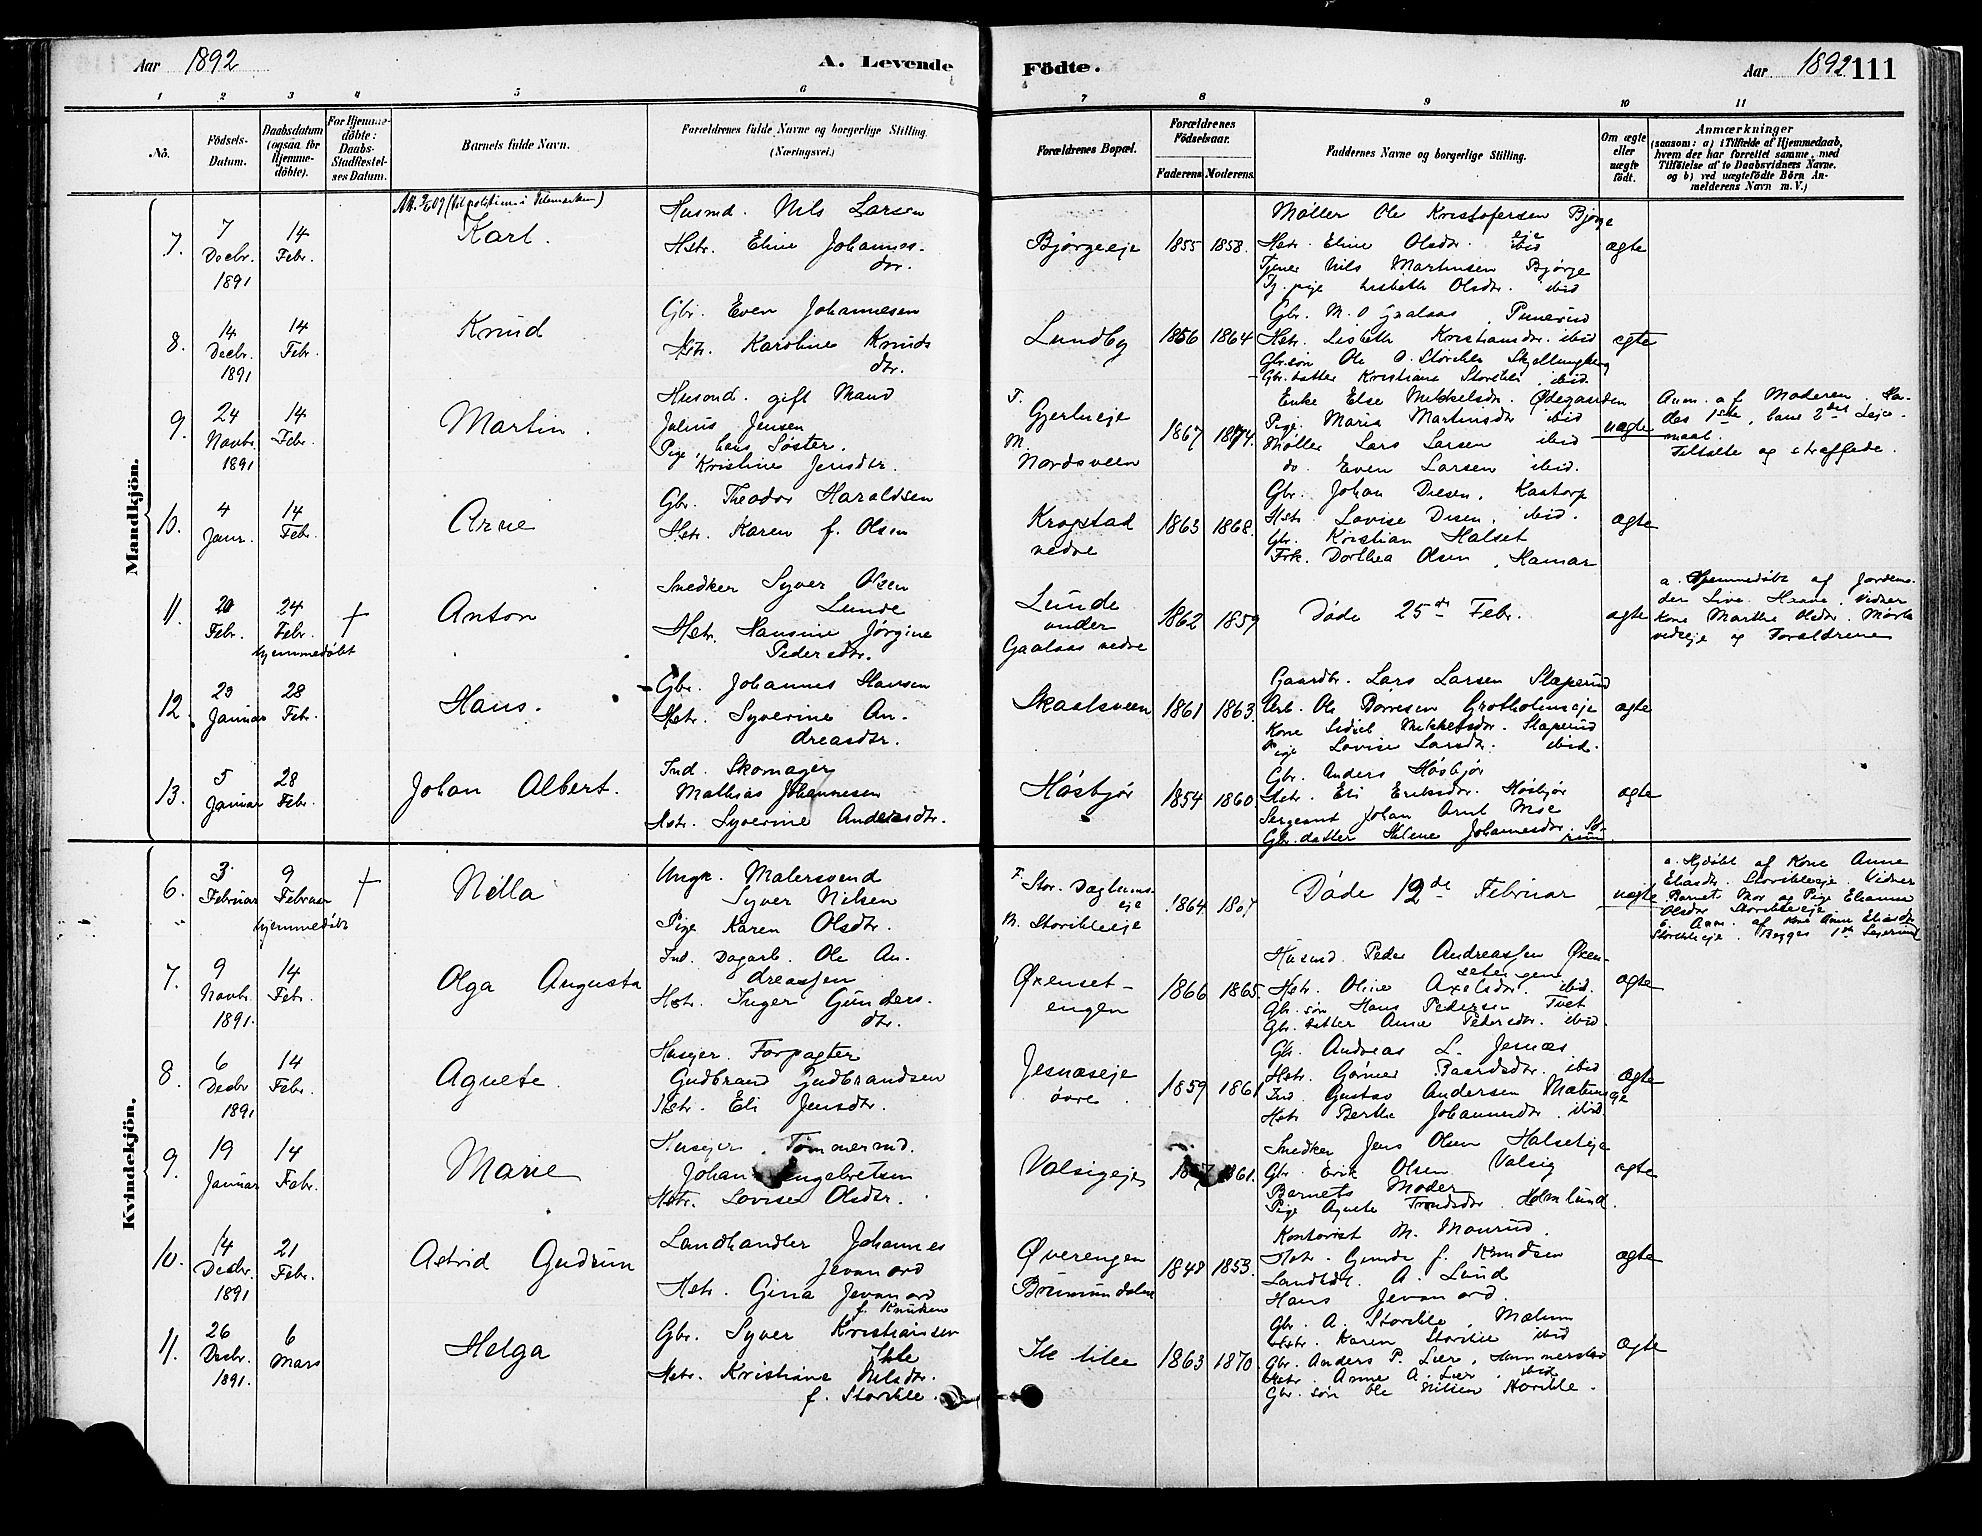 Aar 1892
A. Levende
Födte.
Aar 1892
111
1 2 3 4 5 6 7 8 9 10 11
No.
Födsels-Datum.
Daabsdatum (ogsaa for Hjemme-döbte).
For Hjemme-döbte: Daabs-Stadfæstel-ses Datum.
Barnets fulde Navn.
Forældrenes fulde Navne og borgerlige Stilling. (Næringsvei.)
Forældrenes Bopæl.
Forældrenes Födselsaar.
Faderens. Moderens.
Faddernes Navne og borgerlige Stilling.
Om ægte eller uægte födt.
Anmærkninger
(saasom: a) i Tilfælde af Hjemmedaab, hvem der har forrettet samme, med Tilföielse af to Daabsvidners Navne, og b) ved uægtefödte Börn An-melderens Navn m. V.)
Mandkjön.
7. 7 Decbr. 1891
14 Febr.
Karl.
Husmd. Nils Larsen
Hstr. Eline Johannes-
dtr.
Bjørgeeje
1855 1858.
Møller Ole Kristofersen Bjørge
eje
Hstr. Eline Olsdtr. ibid
Tjener Nils Martinsen Bjørge
Tj. pige Lisbeth Olsdtr. ibid
ægte
8. 14 Decbr. 1891
14 Febr.
Knud
Gbr. Even Johannesen
Hstr. Karoline Knuds
dtr.
Lundby
1856 1864
Gbr. M. O Gaalaas,
Hstr. Lisbeth Kristiansdtr. ibid
Gbr.søn Ole O. Storihle Skjellungberg
Gbr. datter Kristiane Storihle ibid.
ægte
9. 24 Novbr. 1891
14 Febr.
Martin.
Husmd. gift Mand
Julius Jensen
Pige, hans Søster.
Kristine Jensdtr.
F. Gjerlueje
M. Nordsveen
1867 1874.
Enke Else Mikkelsdtr. Ødegaarden
Pige Maria Martinsdtr ibid
Møller Lars Larsen ibid
do. Even Larsen ibid.
uægte
Anm. af Moderen.
des 1ste, hans 2det Leje-
maal.
Tiltalte og straffede.
10. 4 Janr.
14 Febr.
Arne
Gbr. Theodor Haraldsen
Hstr. Karen f. Olsen
Krogstad
nedre
1863 1868.
Gbr. Johan Diesen, Kastorp
Hstr. Lovise Diesen. ibid.
Gbr. Kristian Halset
Frk. Dorthea Olsen, Hamar
ægte
11. 20 Febr.
24 Febr. hjemmedøbt
†
Anton
Snedker Syver Olsen
Lunde
Hstr. Hansine Jørgine
Pedersdtr.
Lunde
under
Gaalaas nedre
1862 1859
Døde 25de Febr.
ægte
a. Hjemmedøbt af Jordemo-
der Live Vidner
Kone Marthe Olsdtr.
og Forældrene
12. 23 Januar
28 Febr.
Hans.
Gbr. Johannes Hansen
Hstr. Syverine An-
dreasdtr.
Skaslsveen
1861 1863.
Gaardbr. Lars Larsen Slaperud
Arb. Ole Børresen Grotholmseje
Kone Sidsel Mikkelsdtr. Slaperud
Pige Lovise Larsdtr. ibid.
ægte
13. 5 Januar
28 Febr.
Johan Albert.
Ind. Skomager
Mathias Johannesen
Hstr. Syverine Andersdtr.
Høsbjør
1854 1860.
Gbr. Anders Høsbjør
Hstr. Eli Eriksdtr. Høsbjør
Sergeant Johan Arnt Moe
Gbr. datter Helene Johannesdtr.
ægte
Kvindekjön.
6. 3 Februar
9 Februar hjemmedøbt
†
Nella
Ungk. Malersvend
Syver Nilsen
Pige Karen Olsdtr.
F. Stor.
eje
M. Storihleeje
1864 1867
Døde 12de Februar
uægte
a. Hjdøbt af Kone Anne
Eliasdtr. Storihleeje. Vidner
Barnets Mor og Pige Eleanna
Olsdtr Storihleeje
b. Anm. af Kone Anne Eliasdtr
Storihleeje. Begges 1ste Lejermaal
7. 9 Novbr. 1891.
14 Febr.
Olga Augusta
Ind. Dagarb. Ole An-
dreassen
Hstr. Inger Gunders-
dtr.
Øxenset-
engen
1866 1865.
Husmd Peder Andreassen Øxen-
setengen
Hstr. Oline Axelsdtr. ibid.
Gbr. søn Hans Pedersen Tvet
Gbr. datter Anne Pedersdtr. ibid.
ægte
8. 6 Decbr 1891
14 Febr.
Agnete.
Husejer. Forpagter
Gudbrand Gudbrandsen
Hstr. Eli Jensdtr.
Jesnæseje
øvre.
1859 1861
Gbr. Andreas L. Jesnæs
Hstr. Gørner Baardsdtr. ibid
Ind. Gustav Andersen
Hstr Berthe Johannesdtr. ibid
ægte
9. 19 Januar
14 Febr.
Marie
Husejer. Tømmermd.
Johan Engebretsen
Hstr. Lovise Olsdtr.
Valsigeje
1857 1861.
Snedker Jens Olsen Halseteje
Gbr. Erik Olsen Valsig
Barnets Moder
Pige Agnete Trondsdtr Holmlund.
ægte
10. 14 Decbr. 1891
21 Febr.
Astrid Gudrun
Landhandler Johannes
Jevanord
Hstr. Gina Jevanord
f. Knutsen
Øverengen
Brumunddalen
1848 1853.
Kontorist M. Mourud.
Hstr. Gunda f. Knudsen
Landhdl. A. Lund
Hans Jevanord.
ægte
11. 26 Decbr. 1891.
6 Mars
Helga
Gbr. Syver Kristiansen
Ihle
Hstr. Kristiane Nilsdtr.
f. Storihle.
Ihle lille
1863 1870.
Gbr. A. Storihle, Mælum
Hstr. Karen Storihle ibid
Gbr. Anders P. Lier, Hammerstad
Hstr. Anne A. Lier. ibid
Gbr. søn Ole Nilsen Storihle.
ægte